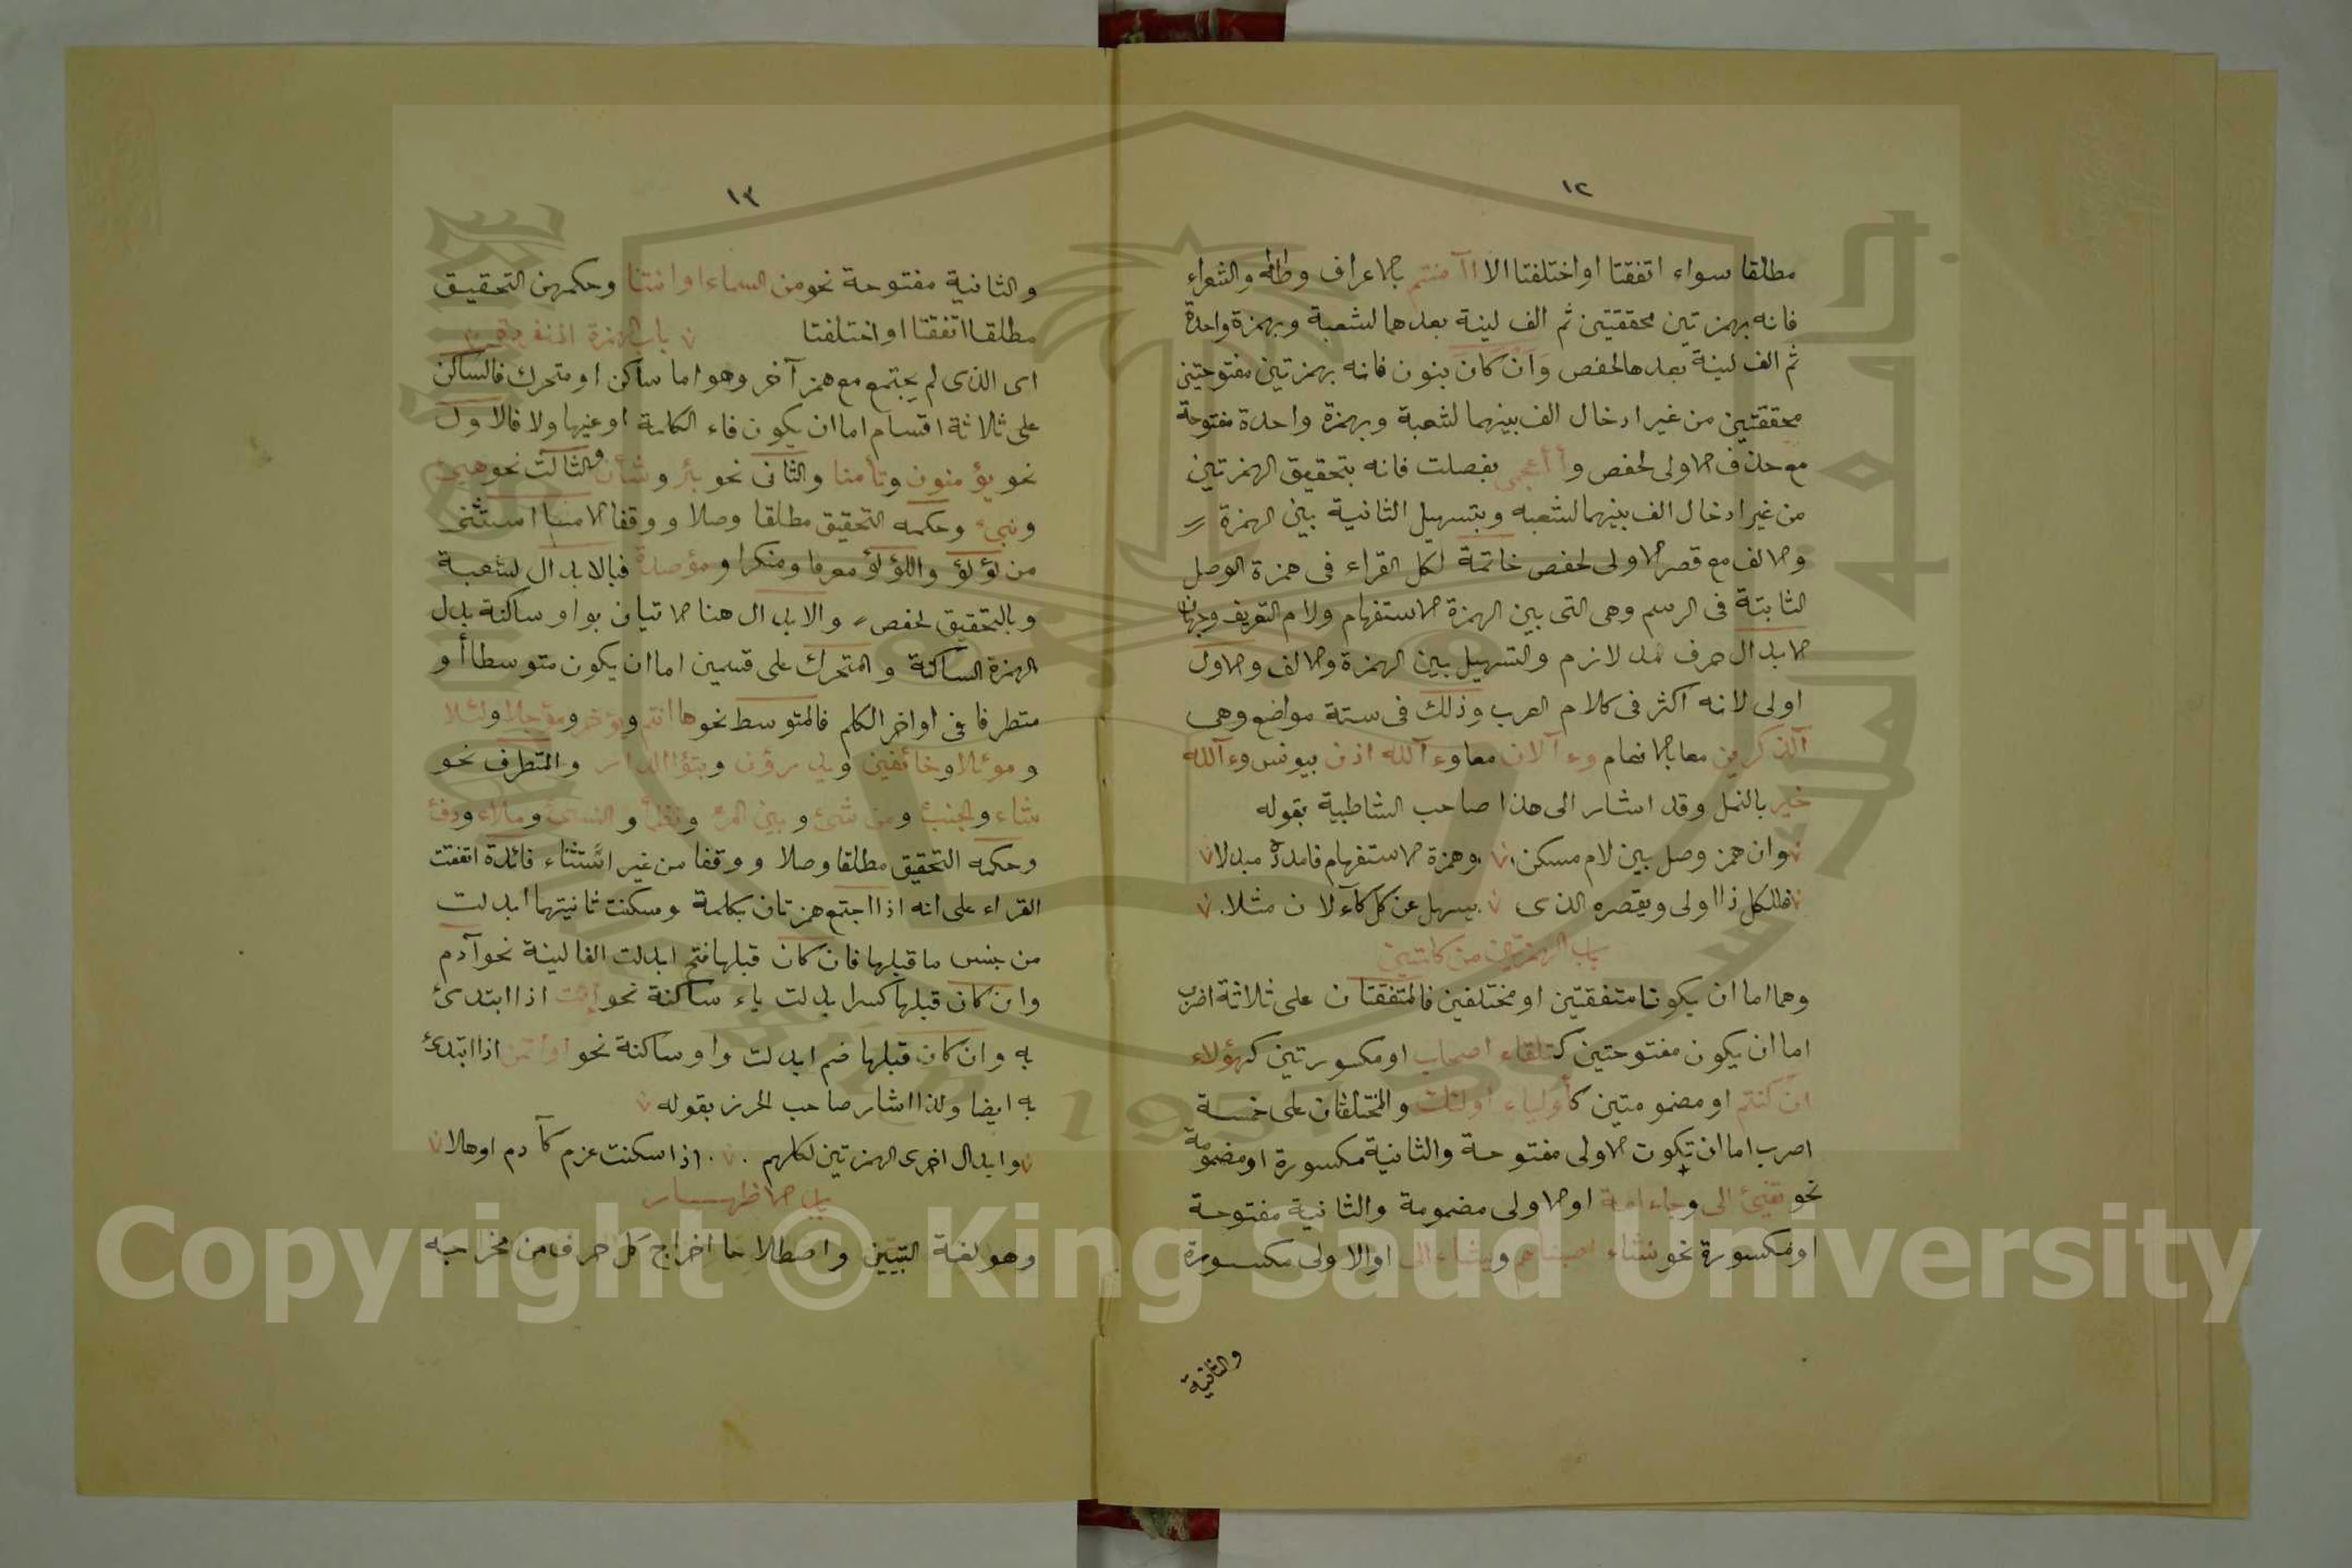 ١٢
مطلقا سواء اتفقتا او اختلفتا الا اآمنتم بالاعراف وطه والشعراء
فانه بهمزتين محققتين ثم الف لينة بعدهما لشعبة وبهمزة واحدة
ثم الف لينة بعدها لحفص وان كان بنون فانه بهمزتين مفتوحتين
محققتين من غير ادخال الف بينهما لشعبة وبهمزة واحدة مفتوحة
مع حذف الاولى لحفص وأأعجمى بفصلت فانه بتحقيق الهمزتين
من غير ادخال الف بينهما لشعبه وبتسهيل الثانية بين الهمزة
والالف مع قصر الاولى لحفص خاتمة لكل القراء فى همزة الوصل
الثابتة فى الرسم وهى التى بين الهمزة الاستفهام ولام التعريف وجهان
الابدال حرف مد لازم والتسهيل بين الهمزة والالف والاول
اولى لانه اكثر فى كلام العرب وذلك فى ستة مواضع وهى
آلذكرين معا بالانعام وءآلان معا وءآلله اذن بيونس وءآلله
خير بالنمل وقد اشار الى هذا صاحب الشاطبية بقوله
وان همز وصل بين لام مسكن وهمزة الاستفهام فامدده مبدلا
فللكل ذا اولى ويقصره الذى يسهل عن كل كآلان مثلا
باب الهمزتين من كلمتين
وهما اما ان يكونا متفقتين او مختلفين فالمتفقتان على ثلاثة اضرب
اما ان يكون مفتوحتين كتلقاء اصحاب او مكسورتين كهؤلاء
ان كنتم او مضمومتين كأولياء اولئك والمختلفان على خمسة
اضرب اما ان تكون الاولى مفتوحة والثانية مكسورة او مضمومة
نحو تفىئ الى وجاء امة او الاولى مضمومة والثانية مفتوحة
او مكسورة نحو نشاء اصبناهم ويشاء الى او الاولى مكسورة
والثانية
١٣
والثانية مفتوحة نحو من السماء او ائتنا وحكمهن التحقيق
مطلقا اتفقتا او اختلفتا باب الهمزة المنفردة
اى الذى لم يجتمع مع همز آخر وهو اما ساكن او متحرك فالساكن
على ثلاثة اقسام اما ان يكون فاء الكلمة او عينها ولا فالاول
نحو يؤمنون وتأمنا والثانى نحو بئر وشأن والثالث نحو هيئ
ونبىء وحكمه التحقيق مطلقا وصلا ووقفا الا ما استثنى
من لؤلؤ واللؤلؤ معرفا ومنكرا ومؤصدة فبالابدال لشعبة
وبالتحقيق لحفص والابدال هنا الاتيان بواو ساكنة بدل
الهمزة الساكنة والمتحرك على قسمين اما ان يكون متوسطا أو
متطرفا فى اواخر الكلم فالمتوسط نحو هاانتم ويؤخر ومؤجلا ولئلا
وموئلا وخائفين ويدرؤن وتبؤا الدار والمتطرف نحو
شاء والجنب ومن شئ وبين المرء وتظمأ والنسئ وملاء ودفء
وحكمه التحقيق مطلقا وصلا ووقفا من غير استثناء فائدة اتفقت
القراء على انه اذا اجتمع همزتان بكلمة وسكنت ثانيتهما ابدلت
من جنس ما قبلها فان كان قبلها فتح ابدلت الفا لينة نحو آدم
وان كان قبلها كسرا بدلت ياء ساكنة نحو ائت اذا ابتدئ
به وان كان قبلها ضم ابدلت واو ساكنة نحو اؤتمن اذا ابتدئ
به ايضا ولذا اشار صاحب الحرز بقوله
وابدال اخرى الهمزتين لكلهم اذا سكنت عزم كآدم اوهلا
باب الاظهار
وهو لغة التبيين واصطلاحا اخراج كل حرف من مخرجه
Copyright © King Saud University
1957